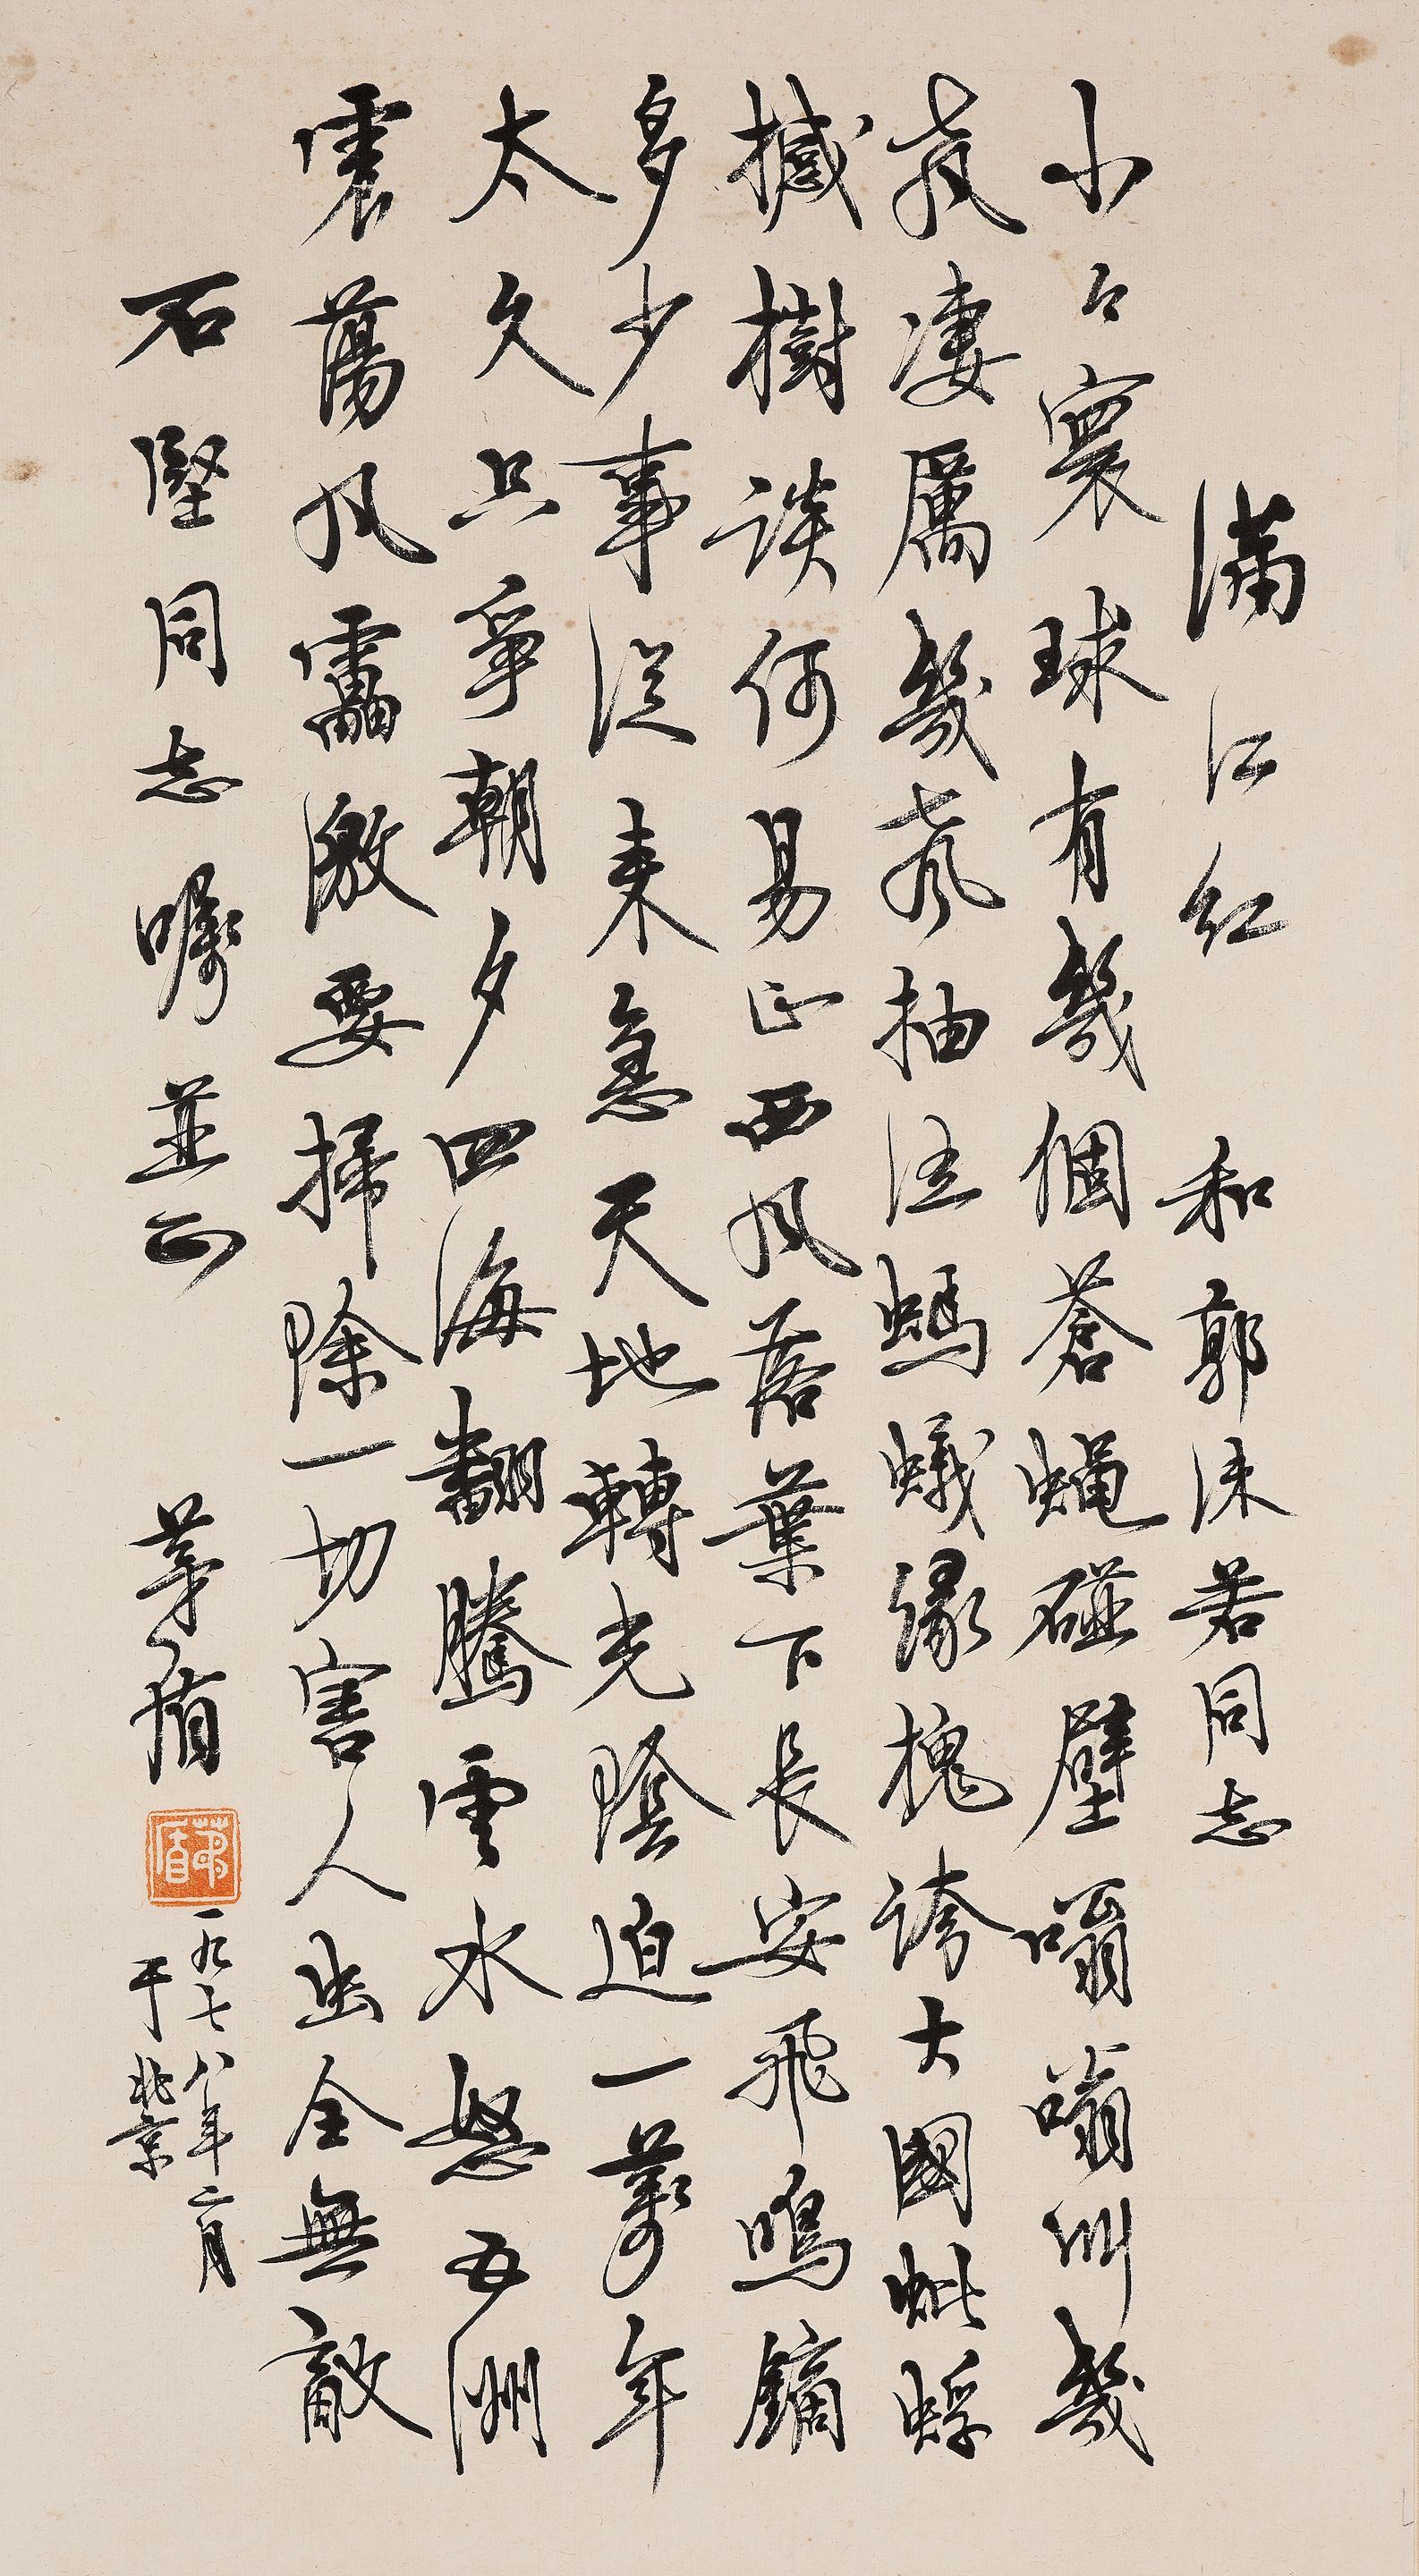 滿江紅 和郭沫若同志
小々寰球有幾個蒼蠅碰壁嗡嗡叫幾
聲凄厲幾聲抽泣螞蟻緣槐誇大國蚍蜉
撼樹談何易正西風落葉下長安飛鳴鏑
多少事從來急天地轉光陰迫一萬年
太久只爭朝夕四海翻騰雲水怒五洲
震蕩風雷激要掃除一切害人虫全無敵
石堅同志囑並正 茅盾
茅盾
一九七八年二月
于北京